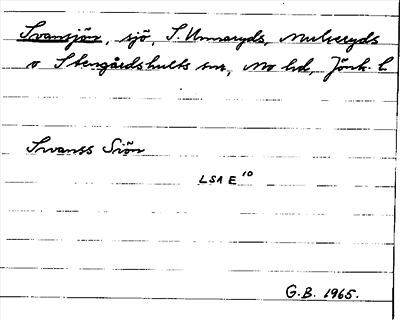 Svansjön, sjö, S. Unnaryds, Mulseryds
o Stengårdshults snr, Mo hd, Jönk. l.
Swanss Siön
LSA E 10
G.B. 1965.